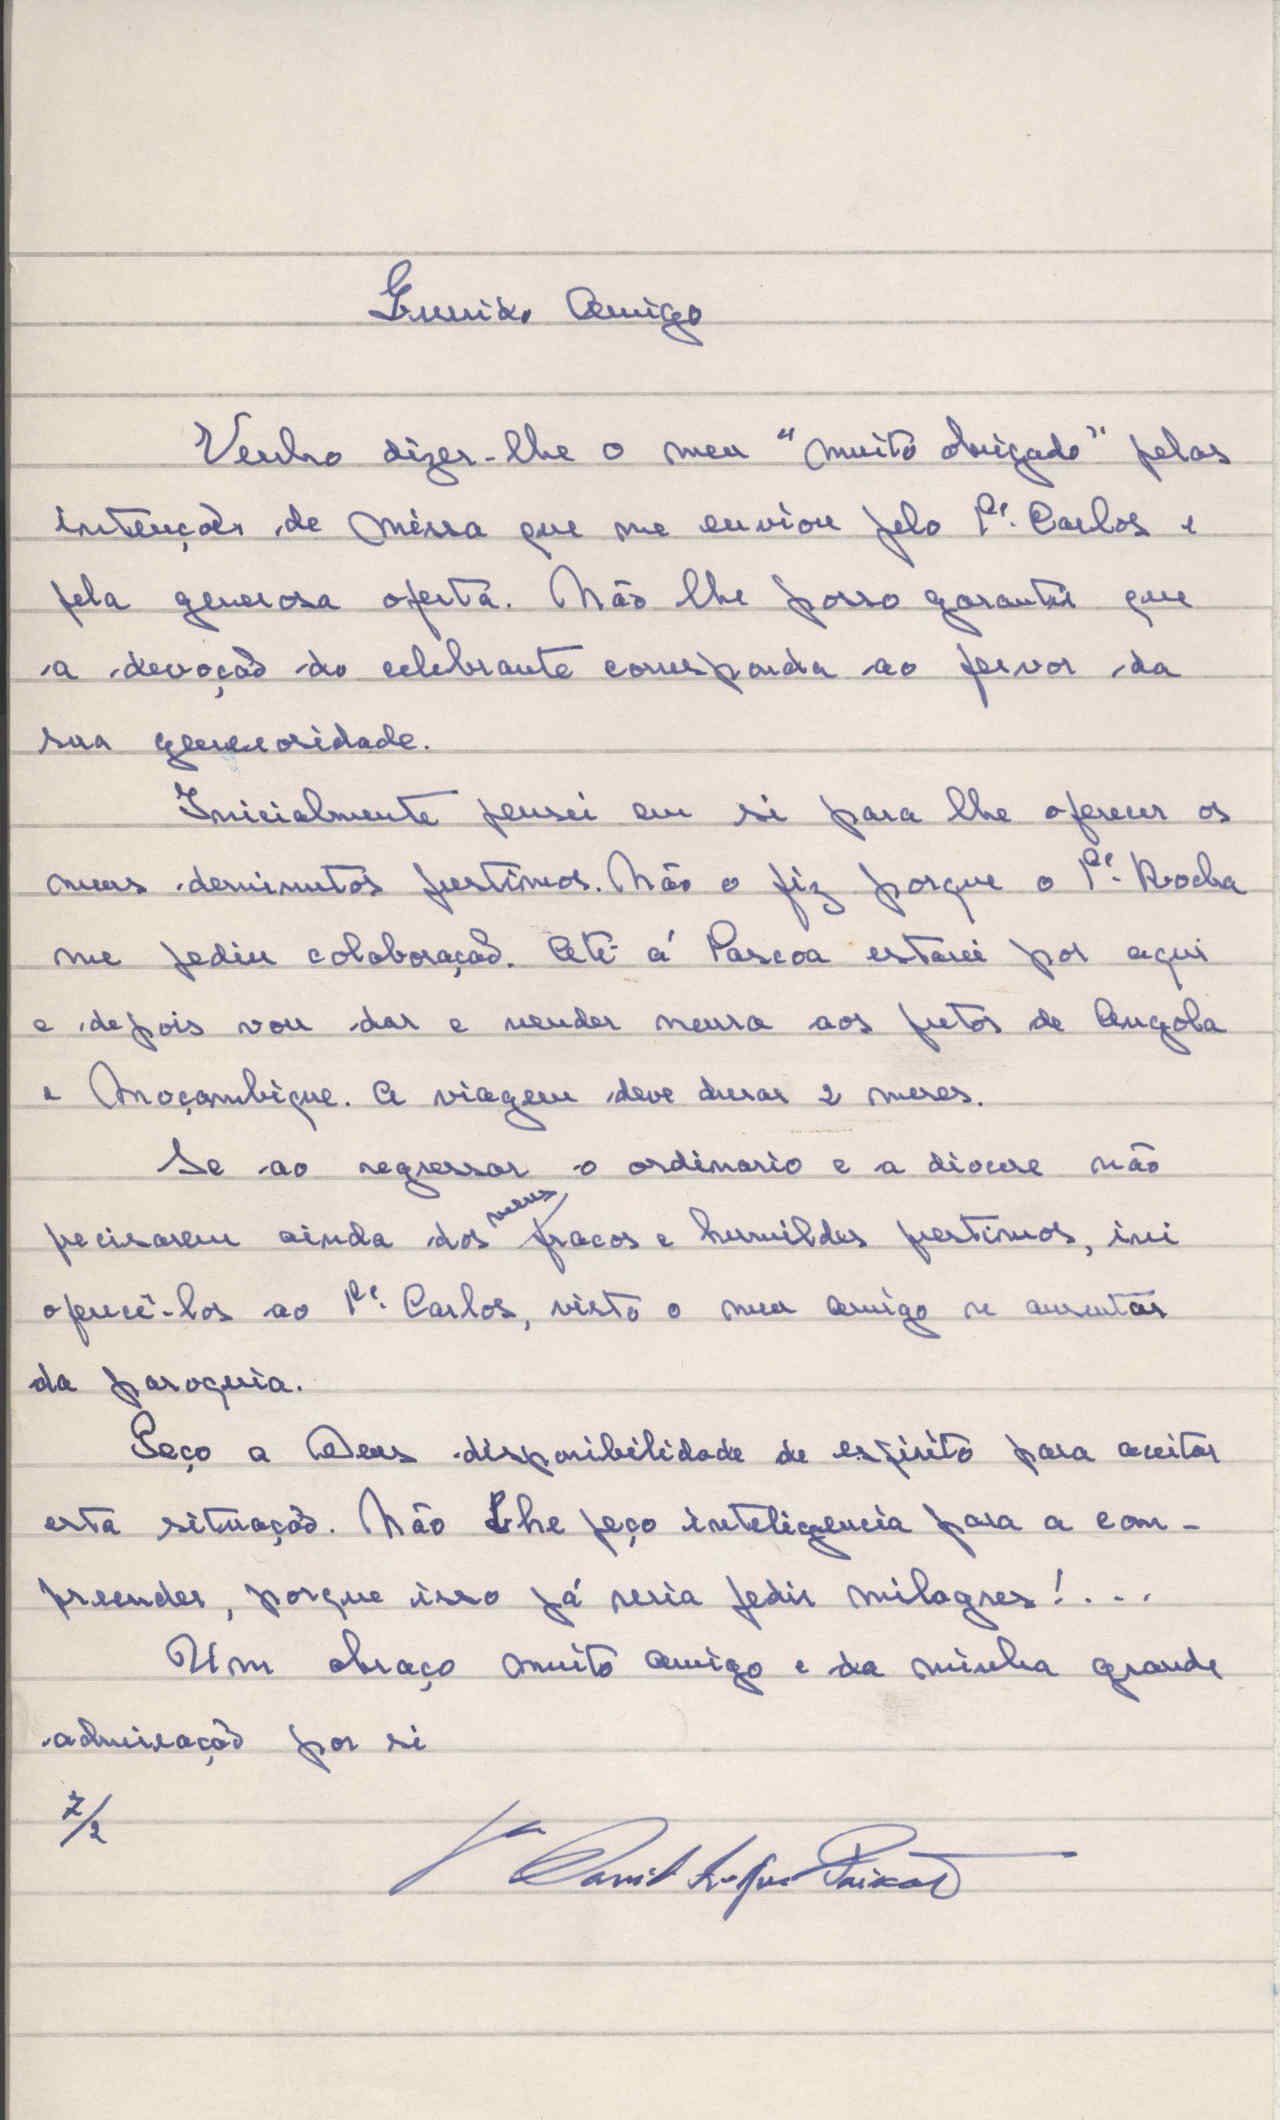 Eurico Amigo
Venho dizer-lhe o meu "muito obrigado" pelas
intenções de Missa que me enviou pelo Pe. Carlos e
pela generosa oferta. Não lhe posso garantir que
a devoção do celebrante corresponda ao fervor da
sua generosidade.
Inicialmente pensei em si para lhe oferecer os
meus deminutos prestimos. Não o fiz porque o Pe. Rocha
me pediu colaboração. Até á Pascoa estarei por aqui
e depois vou dar e vender neura aos pretos de Angola
e Moçambique. A viagem deve durar 2 meses.
Se ao regressar o ordinario e a diocese não
precisarem ainda dos meus fracos e humildes prestimos, irei
oferecê-los ao Pe. Carlos, visto o meu amigo se ausentar
da paroquia.
Peço a Deus disponibilidade de espirito para aceitar
esta situação. Não Lhe peço inteligencia para a com-
preender, porque isso já seria pedir milagres!...
Um abraço muito amigo e da minha grande
admiração por si
7/2
Peixoto